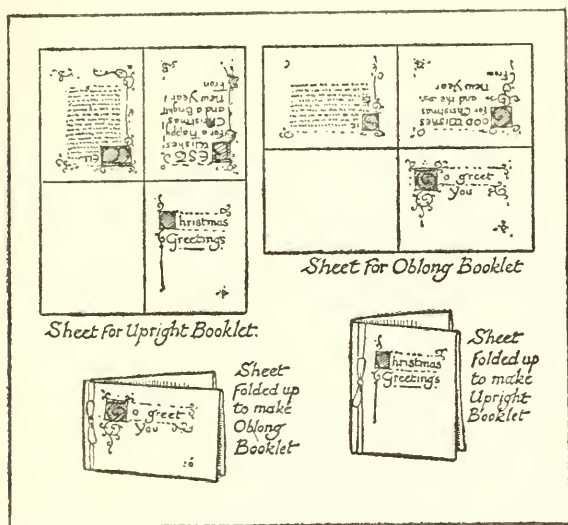 EST
Wishes
for a Happy
Christmas
and a Bright
New Year!
From
hristmas
Greetings
Sheet for Upright Booklet.
OOD Wishes
for Christmas
and the
New Year
From
o greet
you
Sheet for Oblong Booklet
o greet
you
Sheet
folded up
to make
Oblong
Booklet
hristmas
Greetings
Sheet
folded up
to make
Upright
Booklet